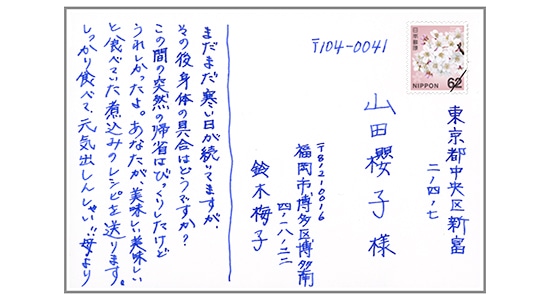 〒104-0041
東京都中央区新富
二ノ四ノ七
山田櫻子様
〒812-0016
福岡市博多区博多南
四ノ八ノ二二
鈴木梅子
まだまだ寒い日が続いてますが、
その後身体の具合はどうですか?
この間の突然の帰省はびっくりしたけど
うれしかったよ。あなたが、美味しい美味しい
と食べていた煮込みのレシピを送ります。
しっかり食べて、元気出しんしゃい!!母より
日本郵便
NIPPON
62